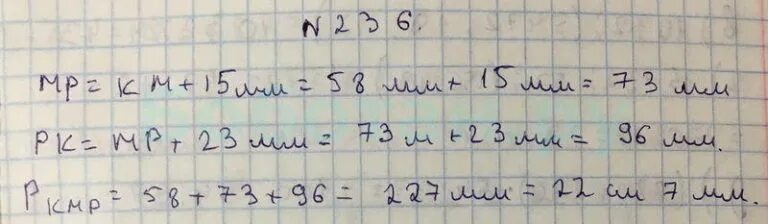 N 236.
MP = KM + 15 мм = 58 мм + 15 мм = 73 мм
PK = MP + 23 мм = 73 м + 23 мм = 96 мм.
P KMP = 58 + 73 + 96 = 227 мм = 22 см 7 мм.